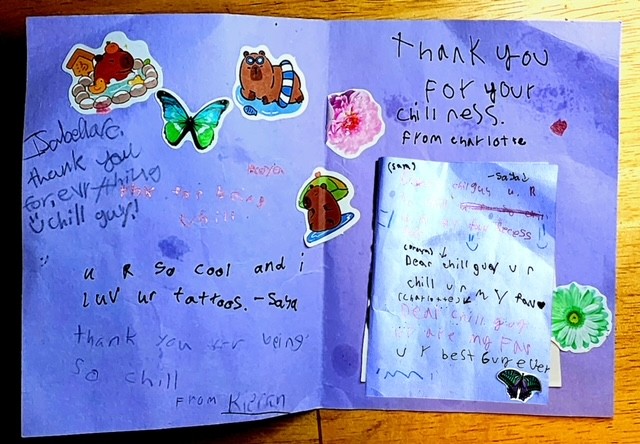 Isabella C.
thank you
for, evrything
chill guy!
for being
chill.
u R so cool and i
luv ur tattoos. -Saya
thank you for being
so chill
From Kieran
thank you
For your
chillness.
From charlotte
(sam)
-Saya
chill guy u R
recess
Dear chill guy u r
chill ur
(charlotte) MY Fav
Dear chill guy
my Fav
u r best Guy ever